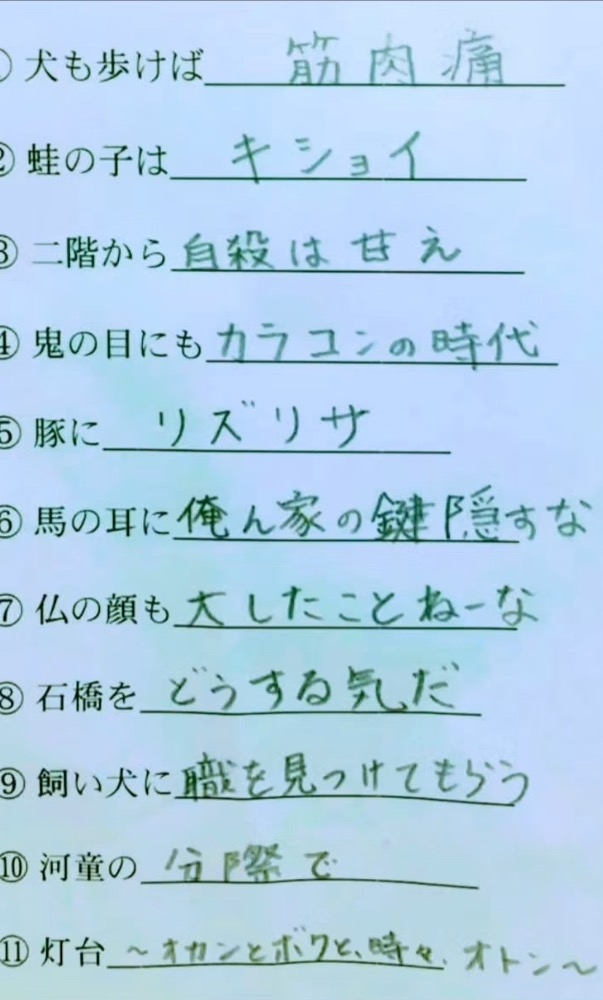 ① 犬も歩けば 筋肉痛
② 蛙の子は キショイ
③ 二階から 自殺は甘え
④ 鬼の目にも カラコンの時代
⑤ 豚に リズリサ
⑥ 馬の耳に 俺ん家の鍵隠すな
⑦ 仏の顔も 大したことねーな
⑧ 石橋を どうする気だ
⑨ 飼い犬に 職を見つけてもらう
⑩ 河童の 分際で
⑪ 灯台 〜オカンとボクと、時々、オトン〜